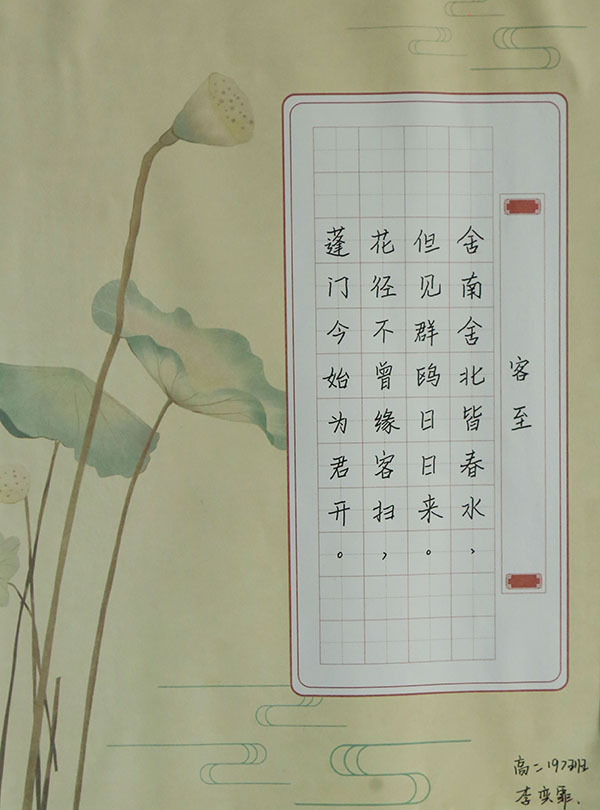 客至
舍南舍北皆春水，
但见群鸥日日来。
花径不曾缘客扫，
蓬门今始为君开。
高二197班
李奕